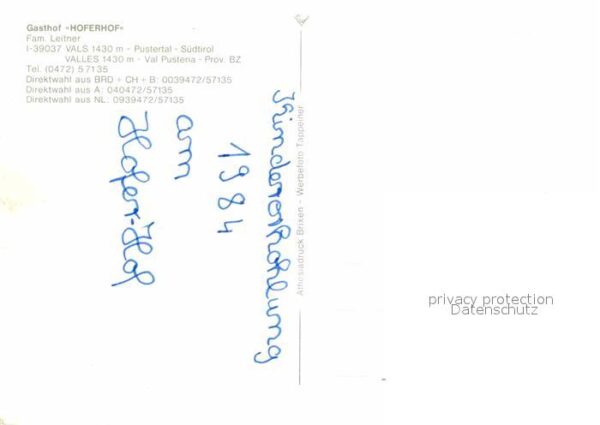 Gasthof «HOFERHOF»
Fam. Leitner
I-39037 VALS 1430 m - Pustertal - Südtirol
VALLES 1430 m - Val Pusteria - Prov. BZ
Tel. (0472) 57135
Direktwahl aus BRD + CH + B: 0039472/57135
Direktwahl aus A: 040472/57135
Direktwahl aus NL: 0939472/57135
Kindererholung
1984
am
Hofer-Hof
Athesiadruck Brixen - Werbefoto Tappeiner
privacy protection
Datenschutz